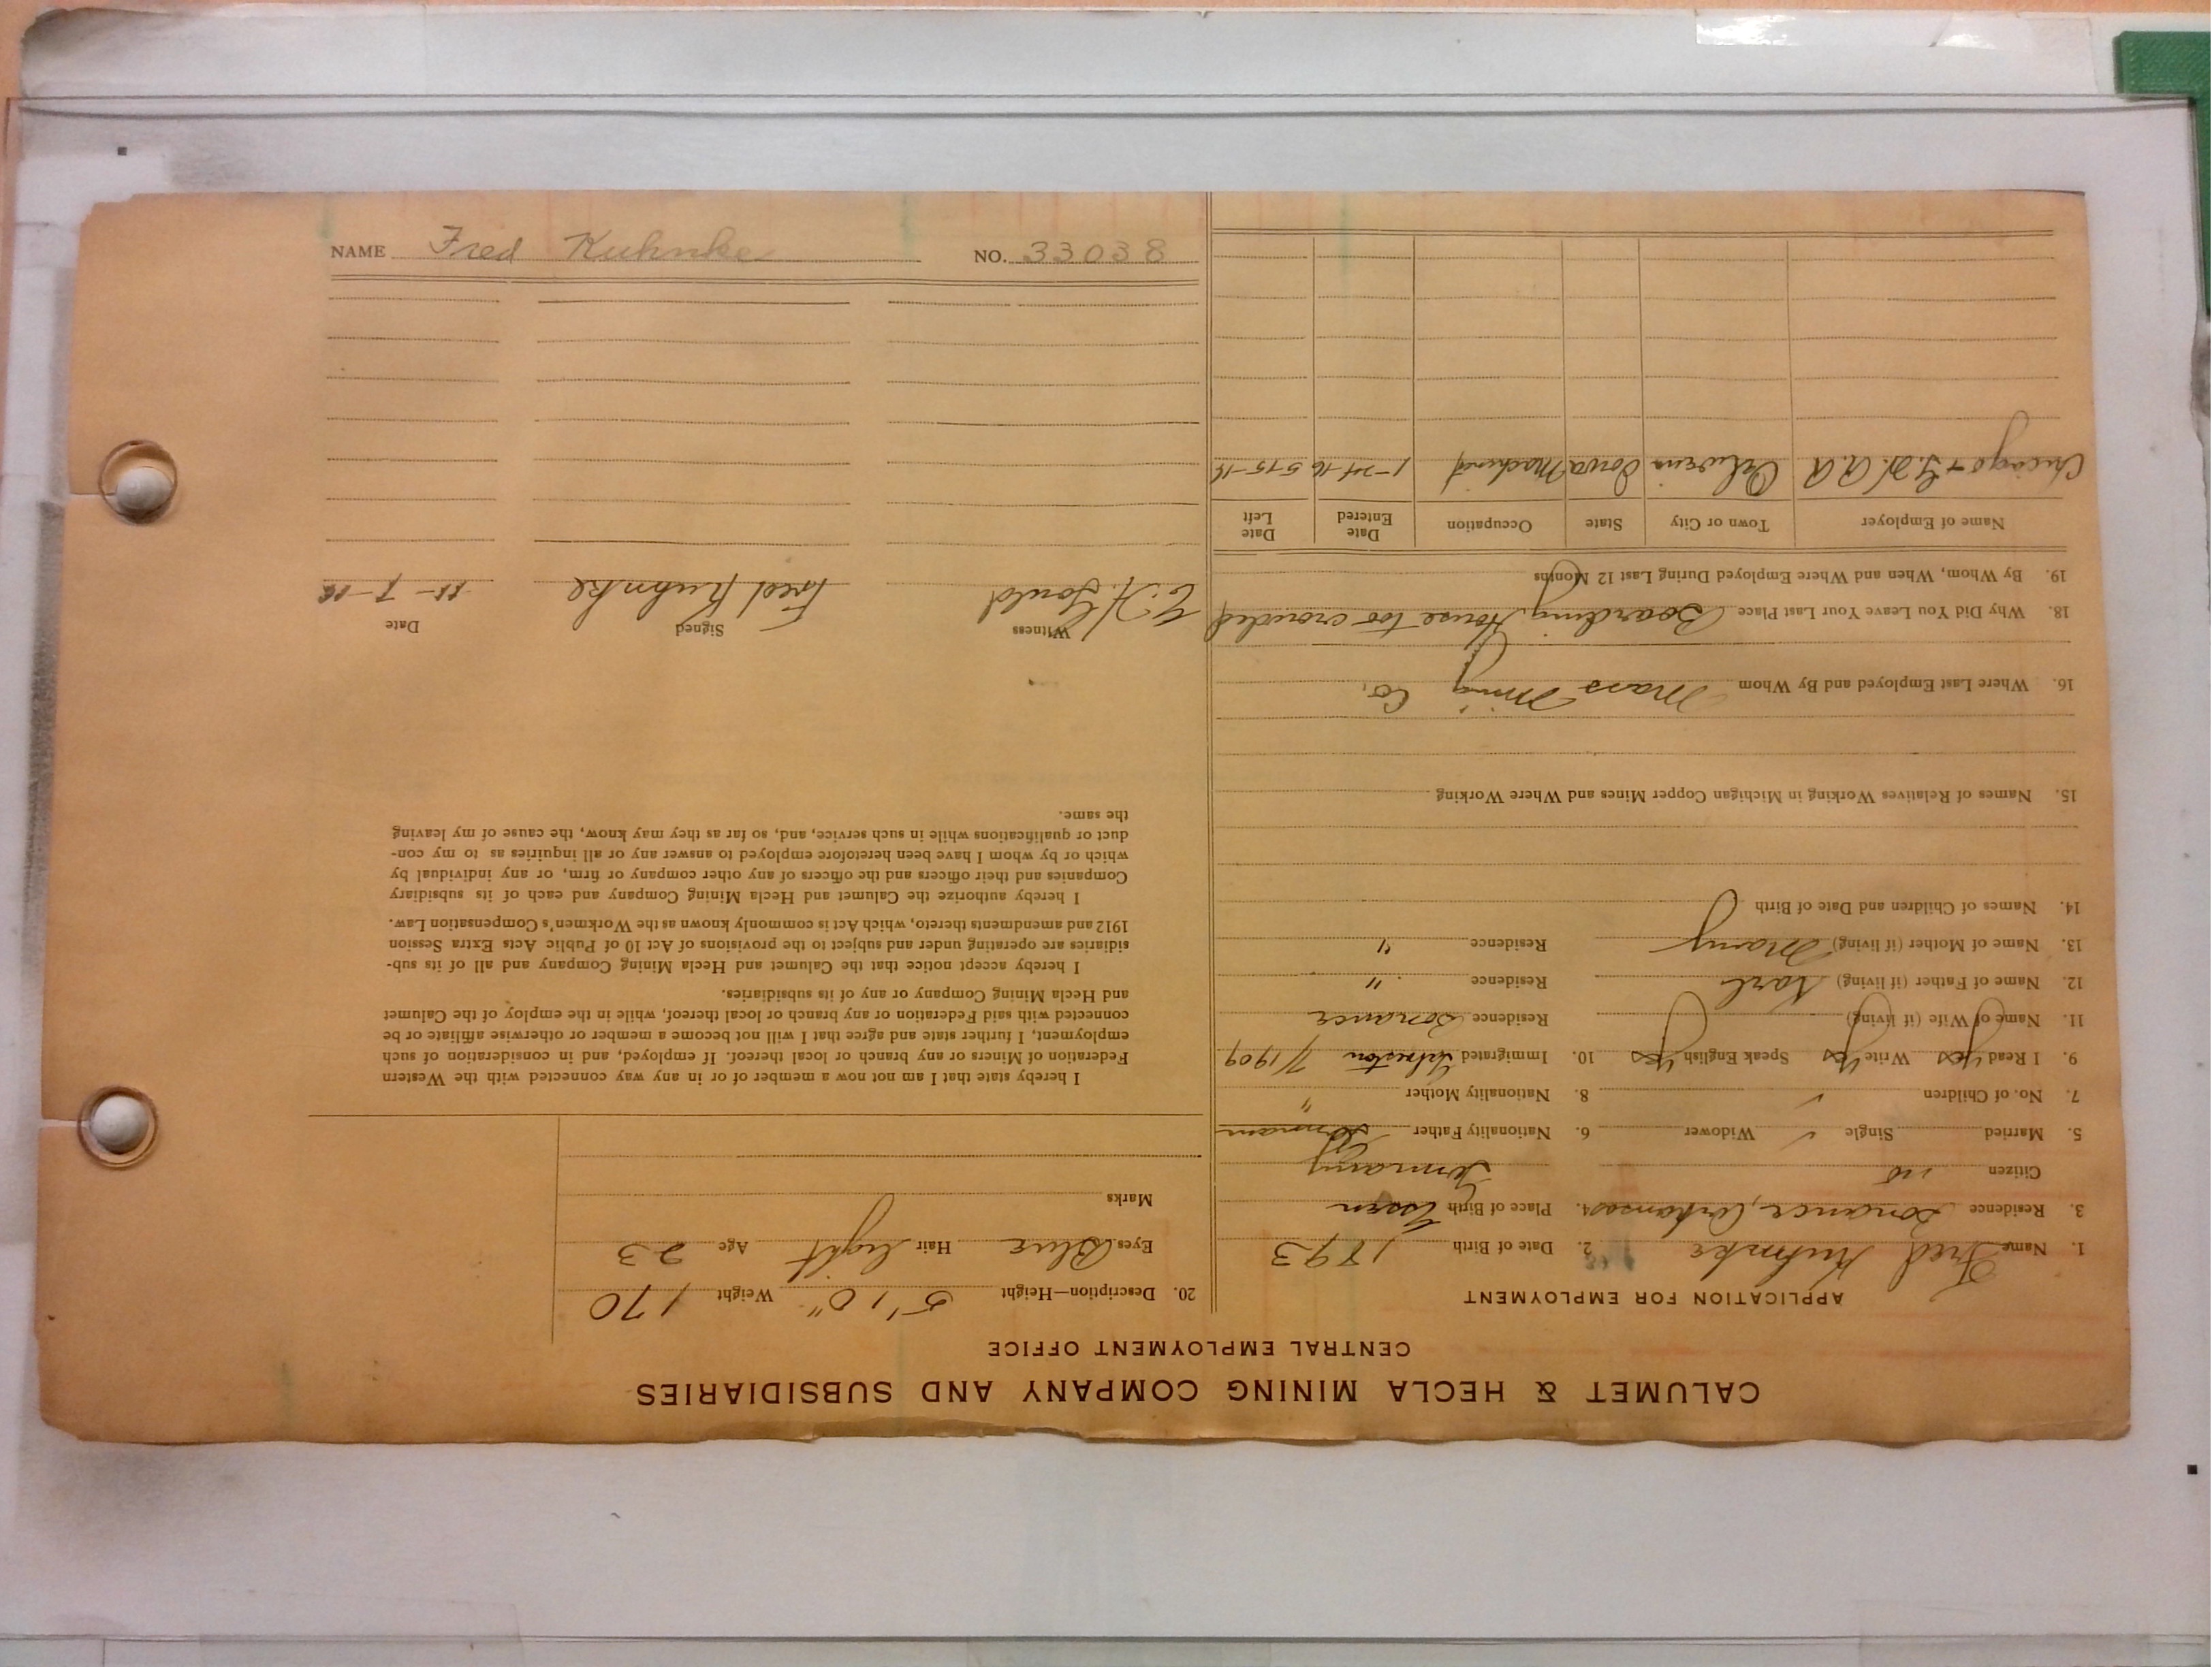 CALUMET & HECLA MINING COMPANY AND SUBSIDIARIES
CENTRAL EMPLOYMENT OFFICE
APPLICATION FOR EMPLOYMENT
1. Name Fred Kuhnke 2. Date of Birth 1893
3. Residence Lonance, Arkansas 4. Place of Birth Essen
Citizen no Germany
5. Married Single ✓ Widower 6. Nationality Father German
7. No. of Children ✓ 8. Nationality Mother "
9. I Read yes Write yes Speak English yes 10. Immigrated Galveston 7/1909
11. Name of Wife (if living) Residence Lonance
12. Name of Father (if living) Karl Residence "
13. Name of Mother (if living) Mary Residence "
14. Names of Children and Date of Birth
15. Names of Relatives Working in Michigan Copper Mines and Where Working
16. Where Last Employed and By Whom Mass Mining Co.
18. Why Did You Leave Your Last Place Boarding House too crowded
19. By Whom, When and Where Employed During Last 12 Months
Name of Employer Town or City State Occupation Date Entered Date Left
Chicago + G.W. R.R Oelwein Iowa Machinist 1-24-16 5-15-16
20. Description—Height 5'10" Weight 170
Eyes Blue Hair light Age 23
Marks
I hereby state that I am not now a member of or in any way connected with the Western
Federation of Miners or any branch or local thereof. If employed, and in consideration of such
employment, I further state and agree that I will not become a member or otherwise affiliate or be
connected with said Federation or any branch or local thereof, while in the employ of the Calumet
and Hecla Mining Company or any of its subsidiaries.
I hereby accept notice that the Calumet and Hecla Mining Company and all of its sub-
sidiaries are operating under and subject to the provisions of Act 10 of Public Acts Extra Session
1912 and amendments thereto, which Act is commonly known as the Workmen's Compensation Law.
I hereby authorize the Calumet and Hecla Mining Company and each of its subsidiary
Companies and their officers and the officers of any other company or firm, or any individual by
which or by whom I have been heretofore employed to answer any or all inquiries as to my con-
duct or qualifications while in such service, and, so far as they may know, the cause of my leaving
the same.
Witness Signed Date
Gould Fred Kuhnke 11-7-16
NAME Fred Kuhnke NO. 33038